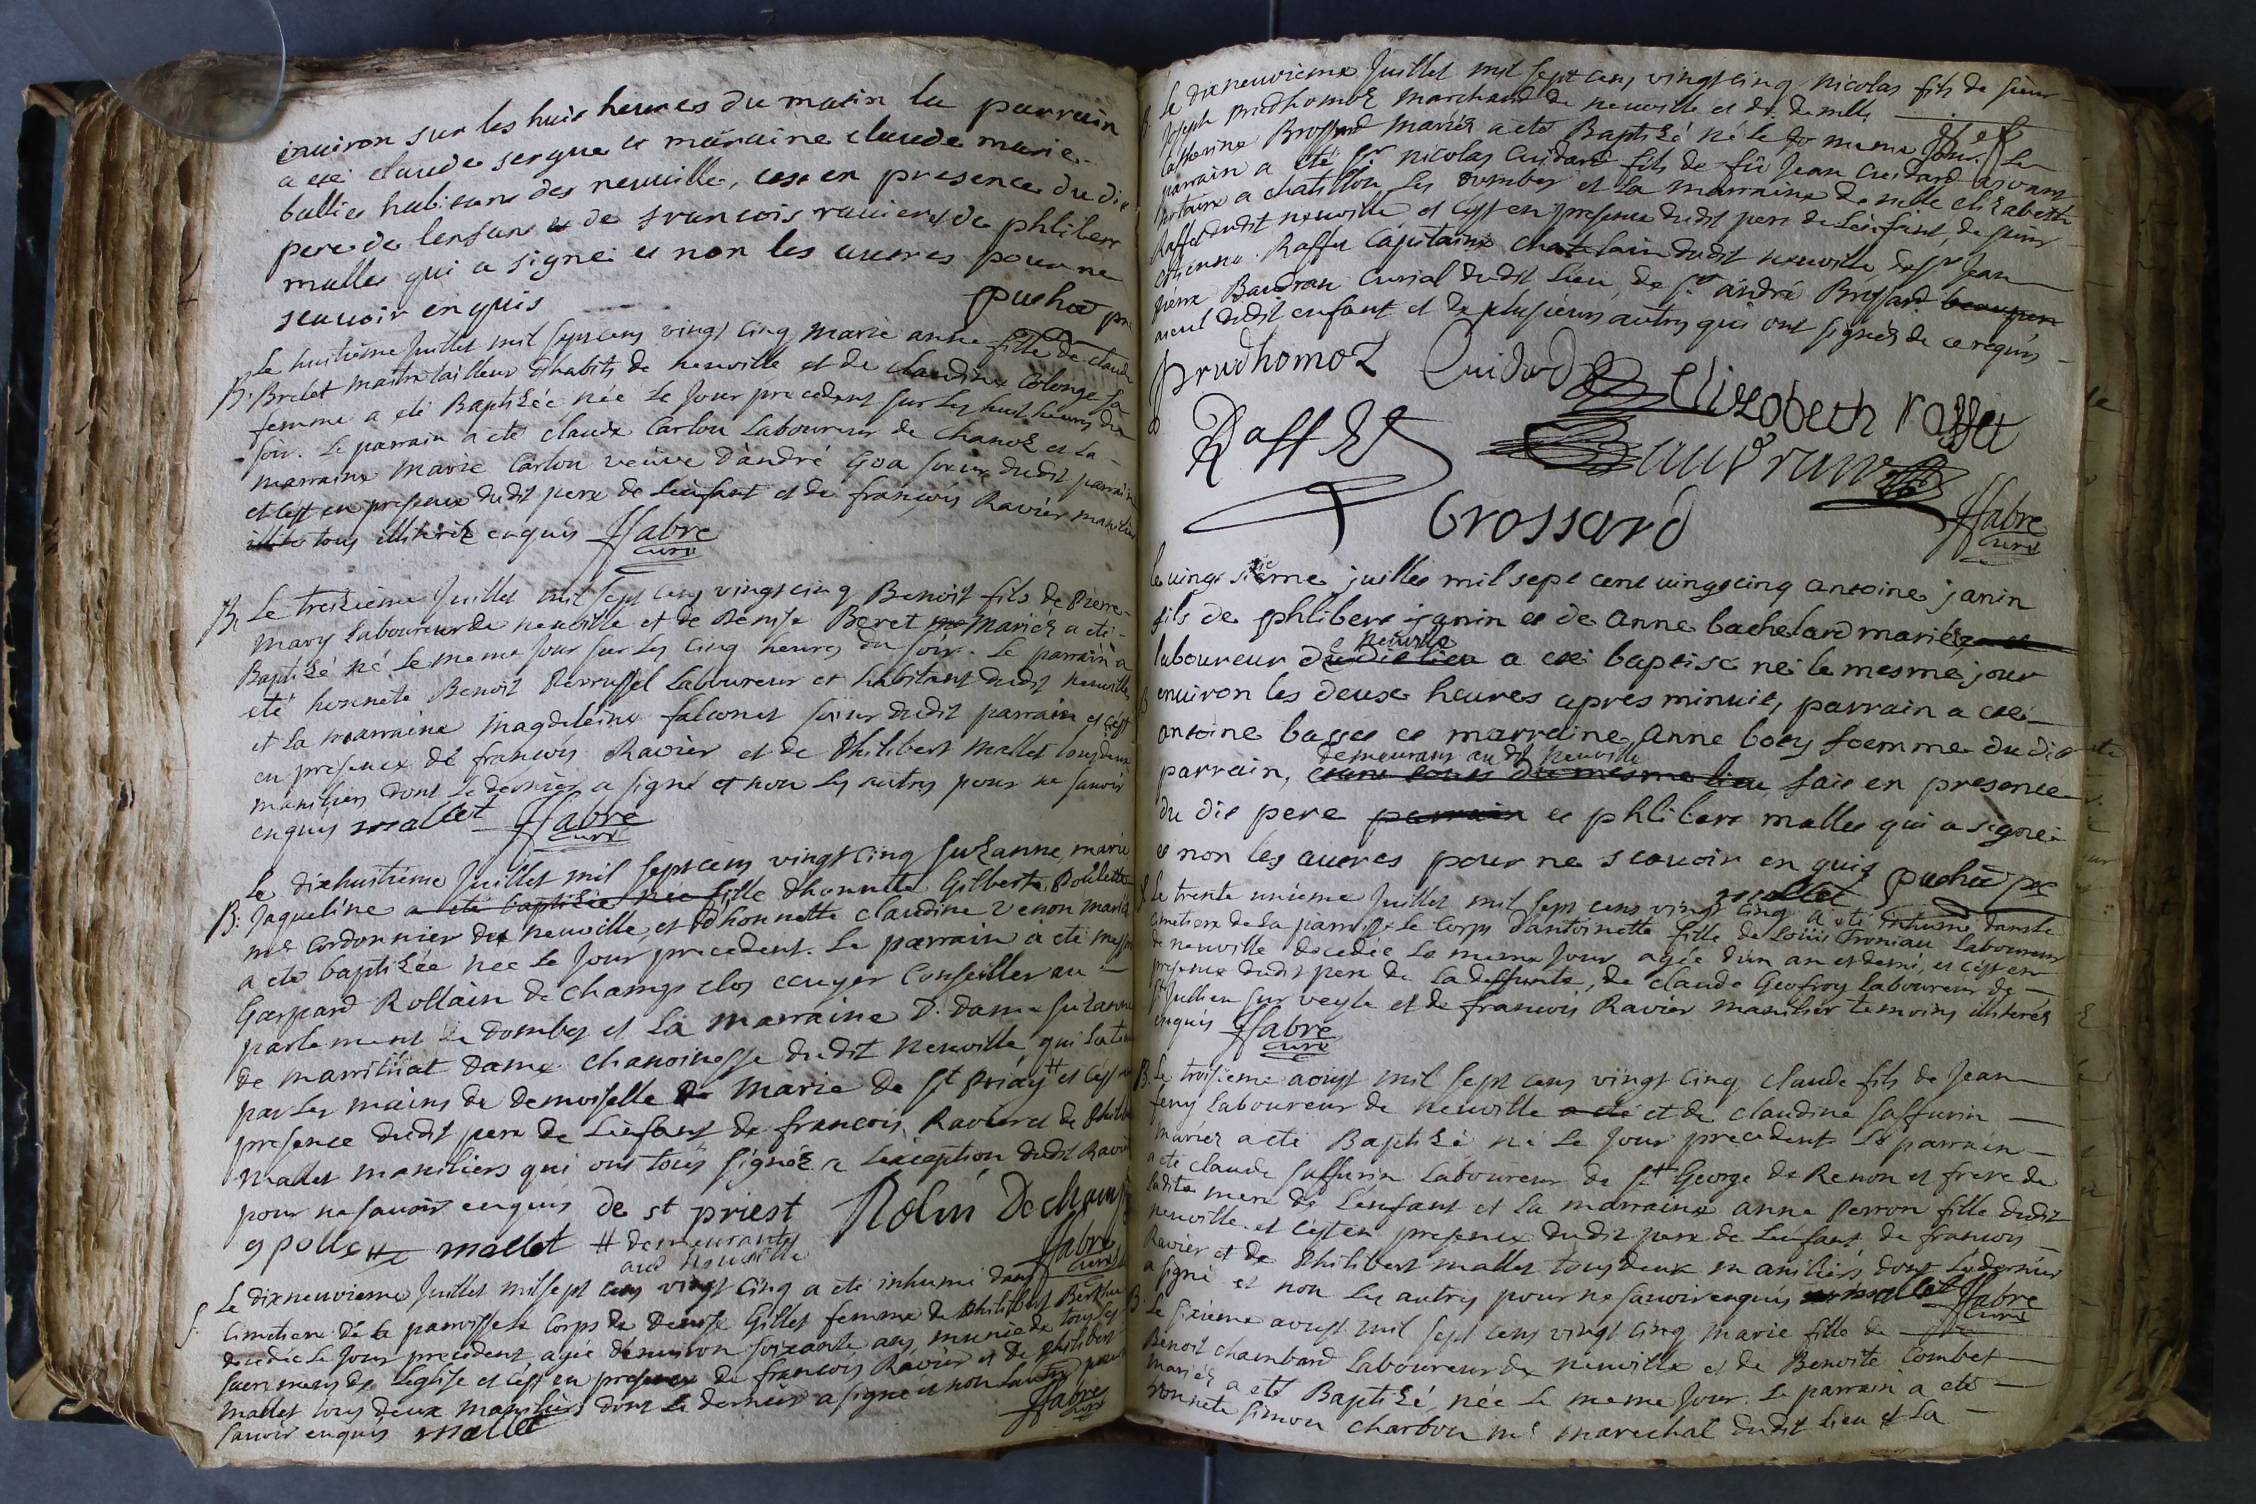 enuiron sur les huit heures du matin la parrain
a eté claude sergue et maraine claude marie
ballies habitans des neuuille, cest en presence du dit
pere de lenfant et de francois rauier et de phlibert
malles qui a signé et non les autres pour ne
scauoir enquis
puohat pre
Le huitième Juillet mil sept cens vingt cinq marie anne fille de claude
B. Brelet maitre tailleur dhabits de neuville et de claudine Colonge sa
femme a eté Baptizée née Le Jour precedent sur Les huit heures du
soir. Le parrain a eté claude Carlou Laboureur de Chanoz et La
marraine marie Carlou veüve dandré Goa soeur dudit parrain
et c'est en presence dudit pere de L'enfant et de françois Ravier manilier
tous illiterez enquis ffabre
curé
B. Le treizieme Juillet mil sept cens vingt cinq Benoit fils de Pierre
mary Laboureur de neuville et de Denise Beret mariez a eté
Baptizé né Le meme Jour sur Les cinq heures du soir. Le parrain a
eté honnete Benoit Laboureur et habitant dudit neuville
et La marraine magdeleine falconet soeur dudit parrain et c'est
en presence de francois Ravier et de Philibert mallet tous deux
maniliers dont Le dernier a signé et non Les autres pour ne sauoir
enquis mallet ffabre
curé
Le dixhuitieme Juillet mil sept cens vingt cinq suzanne marie
B. Jaqueline a eté baptizée née fille dhonnete Gilbert Pollette
me cordonnier de neuville, et dhonnette claudine venon mariez
a eté baptizée née le Jour precedent. Le parrain a eté messire
Gaspard Rollain de champs clos ecuyer Conseiller au
parlement de dombes et La marraine D. dame suzanne
de marillat dame chanoinesse dudit neuville qui La tenu
par les mains de demoiselle marie de st Priay # et c'est en
presence dudit pere de Lenfant de francois Ravier et de Philibert
mallet maniliers qui ont tous signéz a L'exception dudit Ravier
pour ne sauoir enquis de st priest Rolin Dechamp
g polle mallet # demeurante
aud neuville
ffabre
curé
Le dixneuvieme Juillet mil sept cens vingt cinq a eté inhumé dans
S. Cimetiere de La parroisse Le corps de Denise Gillet femme de Philibert
decedée Le Jour precedent, agée d'enuiron soixante ans, munie de tous les
sacremens de L'eglise et c'est en presence de francois Ravier et de philibert
mallet tous deux maniliers dont Le dernier a signé et non L'autre pour
sauoir enquis mallet
ffabre
curé
B. Le dixneuvieme Juillet mil sept cens vingt cinq nicolas fils de sieur
Joseph Prudhomoz marchand de neuville et de d. delle
Catherine Brossard mariéz a eté Baptizé né Le meme Jour. Le
parrain a eté sr nicolas Cuidard fils de fû Jean Cuidard vivant
notaire a chatillon Les dombes et La marraine delle elizabeth
Raffet dudit neuville et c'est en presence dudit pere de L'enfant, de sieur
etienne Raffet Capitaine chatelain dudit neuville de sr Jean
pierre Baudran Curial dudit Lieu, de sr andré Brossard beaupere
aieul dudit enfant et de plusieurs autres qui ont signéz de ce requis
prudhomoz Cuidard Elizobeth raffet
Raffet Baudran
brossard
ffabre
curé
le vingt sixieme juillet mil sept cent vingt cinq antoine janin
fils de phlibert janin et de anne bachelard mariéz et
neuville
laboureur de du dit lieu a eté baptisé né le mesme jour
enuiron les deux heures apres minuit, parrain a eté
antoine bages et marraine anne boey foemme du dit
demeurans au dit neuville
parrain, du mesme lieu fait en presence
du dit pere parrain et phlibert malles qui a signé
et non les autres pour ne scauoir enquis
mallet puohat pre
S. Le trente unieme Juillet mil sept cens vingt cinq a eté inhumé dans Le
cimetiere de La parroisse Le corps d'antoinette fille de Loüis Troniau Laboureur
de neuville decedée Le meme Jour agée d'un an et demi, et c'est en
presence dudit pere de La deffunte, de claude Geofroy Laboureur de
st Jullien sur veyle et de francois Ravier manilier temoins illiterés
enquis ffabre
curé
B. Le troisieme aoust mil sept cens vingt cinq claude fils de Jean
feny Laboureur de neuville a eté et de claudine saffurin
mariéz a eté Baptizé né Le Jour precedent Le parrain
a eté claude saffurin Laboureur de st George de Renon et frere de
Ladite mere de L'enfant et La marraine anne Perron fille dudit
neuville et c'est en presence dudit pere de L'enfant de francois
Ravier et de Philibert mallet tous deux maniliers dont Le dernier
a signé et non Les autres pour ne sauoir enquis mallet ffabre
curé
B. Le sixieme aoust mil sept cens vingt cinq marie fille de
Benoit chambard Laboureur de neuville et de Benoite Combet
mariéz a eté Baptizé, née Le meme Jour. Le parrain a eté
honnete simon charbon me marechal dudit Lieu et La